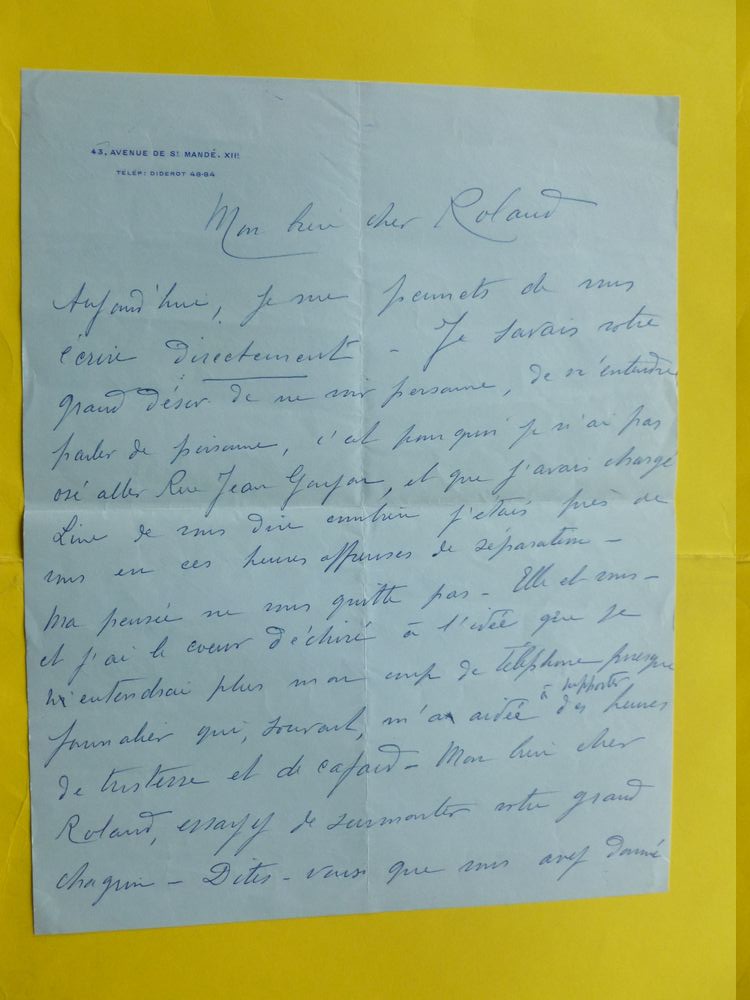 43, AVENUE DE ST MANDÉ. XIIE
TÉLÉP: DIDEROT 48-84
Mon bien cher Roland
Aujourd'hui, je me permets de vous
écrire directement - Je savais votre
grand désir de ne voir personne, de n'entendre
parler de personne, c'est pourquoi je n'ai pas
osé aller Rue Jean Goujon, et que j'avais chargé
Line de vous dire combien j'étais près de
vous en ces heures affreuses de séparation -
Ma pensée ne vous quitte pas - Elle et vous -
et j'ai le coeur déchiré à l'idée que je
n'entendrai plus mon coup de téléphone presque
journalier qui, souvent, m'a aidée à supporter des heures
de tristesse et de cafard - Mon bien cher
Roland, essayez de surmonter votre grand
chagrin - Dites-vous que vous avez donné